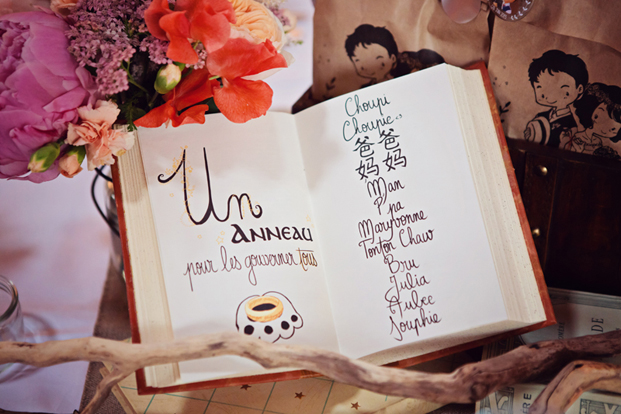 Un
ANNEAU
pour les gouverner tous
Choupi
Choupie
爸爸
妈妈
Man
Pa
Maryvonne
Tonton Chaw
Bru
Julia
Aubee
Souphie
DE